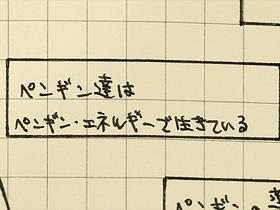 ペンギン達は
ペンギン・エネルギーで生きている
ペンギンの